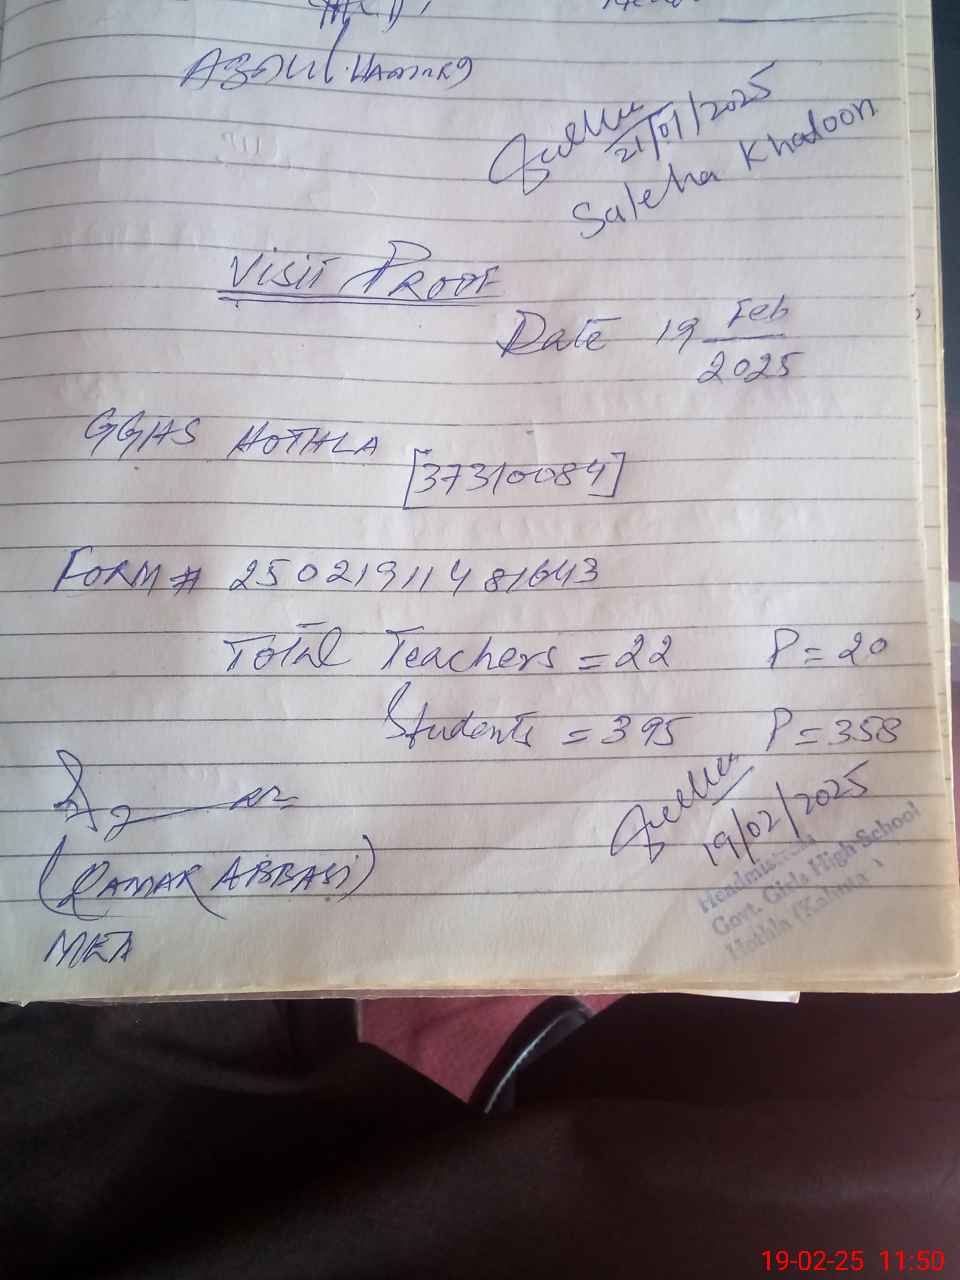 ABDUL
21/01/2025
Saleha Khatoon
Visit PROOF
Date 19 Feb
2025
GGHS HOTHLA
[37310084]
FORM # 250219114 81643
Total Teachers = 22 P = 20
Students = 395 P = 358
19/02/2025
(QAMAR ABBASI)
MEA
Headmistress
Govt. Girls High School
Hothla (Kahuta)
19-02-25 11:50